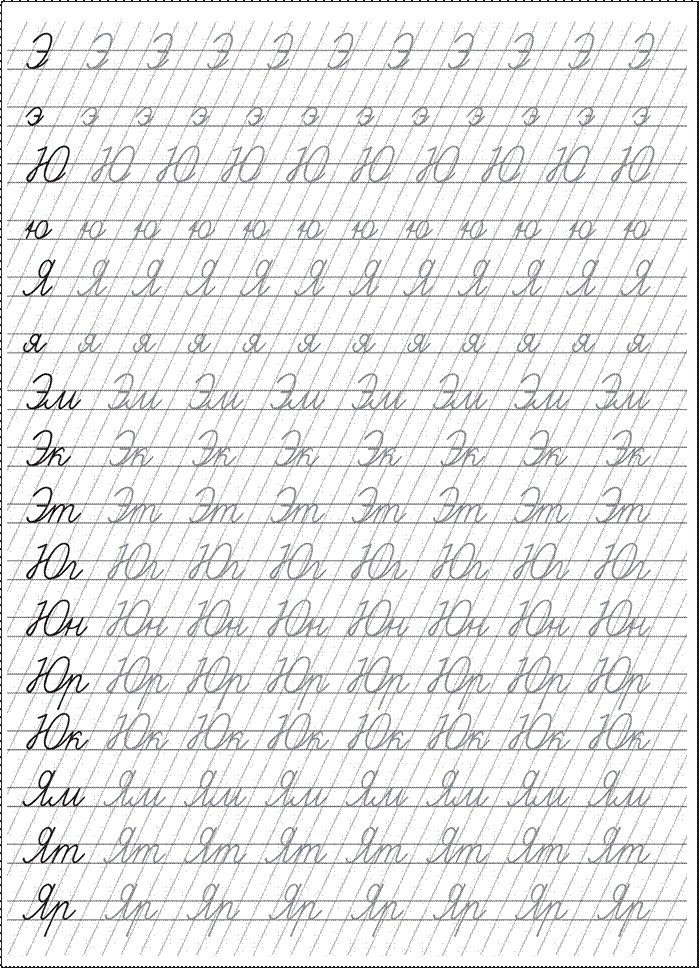 Э Э Э Э Э Э Э Э Э Э Э
э э э э э э э э э э э э
Ю Ю Ю Ю Ю Ю Ю Ю Ю Ю
ю ю ю ю ю ю ю ю ю ю ю ю
Я Я Я Я Я Я Я Я Я Я Я Я
я я я я я я я я я я я я
Эм Эм Эм Эм Эм Эм Эм Эм
Эк Эк Эк Эк Эк Эк Эк Эк
Эт Эт Эт Эт Эт Эт Эт Эт
Юг Юг Юг Юг Юг Юг Юг Юг
Юн Юн Юн Юн Юн Юн Юн Юн
Юр Юр Юр Юр Юр Юр Юр Юр
Юк Юк Юк Юк Юк Юк Юк Юк
Ям Ям Ям Ям Ям Ям Ям Ям
Ят Ят Ят Ят Ят Ят Ят Ят
Яр Яр Яр Яр Яр Яр Яр Яр